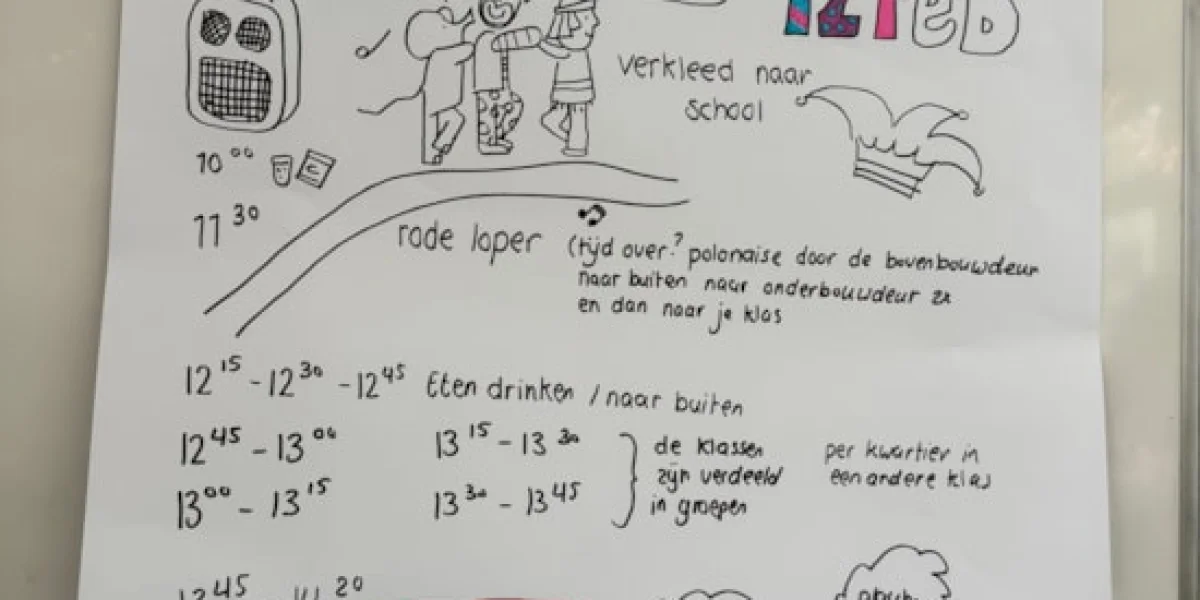 verkleed naar
school
10 00
11 30
rode loper (tijd over? polonaise door de bovenbouwdeur
naar buiten naar onderbouwdeur
en dan naar je klas
12 15 - 12 30 - 12 45 Eten drinken / naar buiten
12 45 - 13 00
13 15 - 13 30
13 00 - 13 15
13 30 - 13 45
de klassen
zijn verdeeld
in groepen
per kwartier in
een andere klas